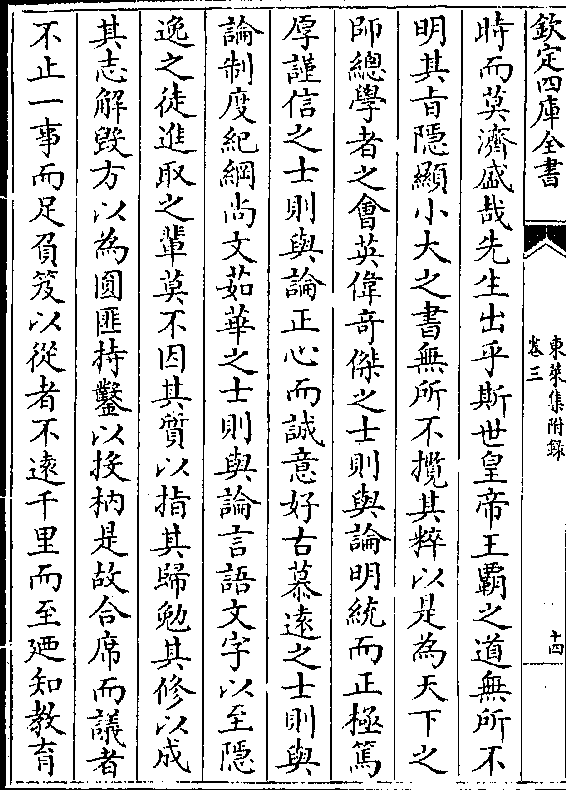 欽定四庫全書
東萊集附録
卷三
十四
時而莫濟盛哉先生出乎斯世皇帝王霸之道無所不
明其㫖隱顯小大之書無所不攬其粹以是為天下之
師總學者之會英偉奇傑之士則與論明統而正極篤
厚謹信之士則與論正心而誠意好古慕遠之士則與
論制度紀綱尚文茹華之士則與論言語文字以至隱
逸之徒進取之輩莫不因其質以指其歸勉其修以成
其志解毁方以為圓匪持鑿以授枘是故合席而議者
不止一事而足負笈以從者不逺千里而至廼知教育